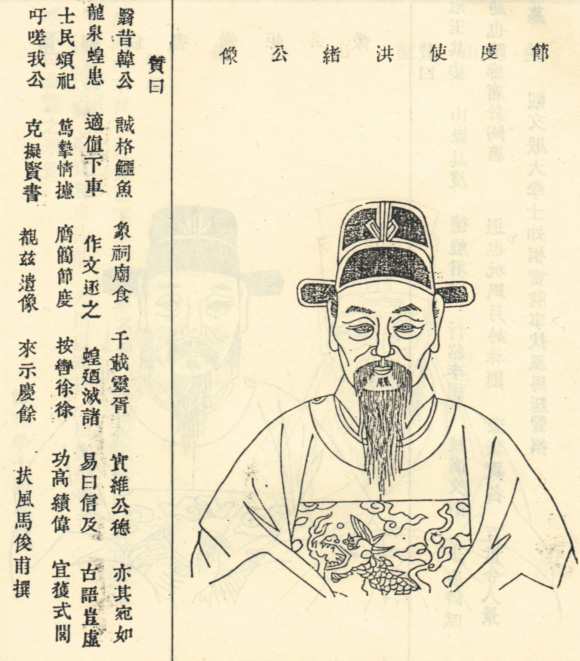 節度使洪緒公像
贊曰
翳昔韓公 誠格鱷魚 象祠廟食 千載靈胥 實維公德 亦其宛如
龍泉蝗患 適值下車 作文逐之 蝗廼滅諸 易曰信及 古語豈虛
士民頌祀 篤摯情攄 膺簡節度 按轡徐徐 功高績偉 宜獲式閭
吁嗟我公 克擬賢書 茲遺像 來示慶餘 扶風馬俊甫撰